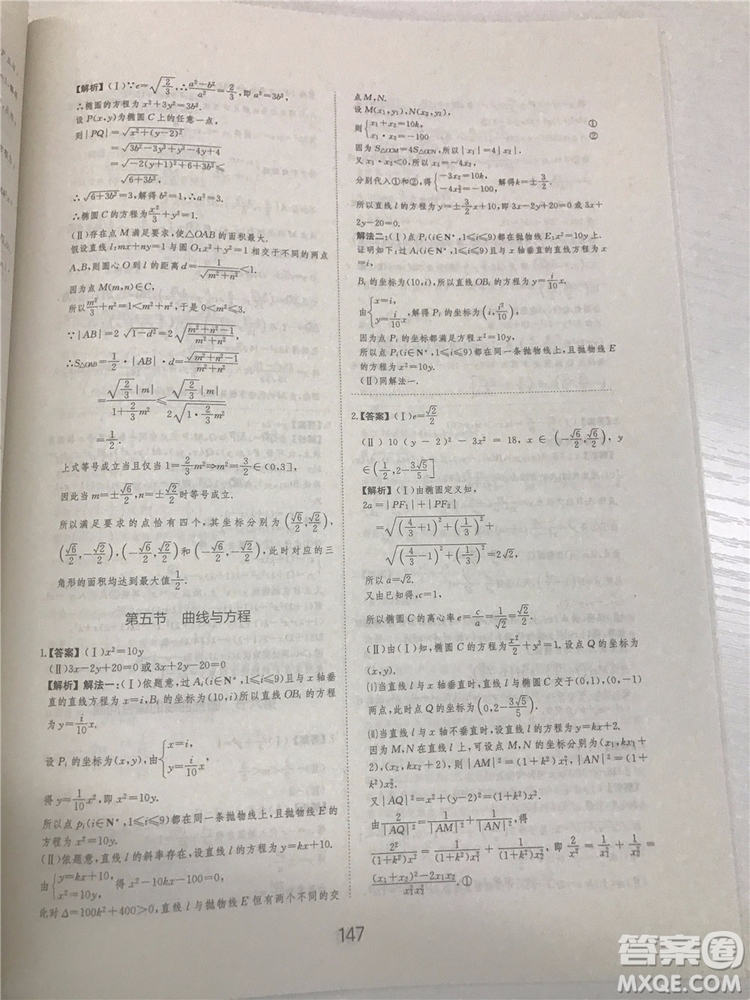 【解析】(Ⅰ)∵e=√(2/3),∴(a²-b²)/a²=2/3,即a²=3b².
∴椭圆的方程为x²+3y²=3b².
设P(x,y)为椭圆C上的任意一点,
则|PQ|=√(x²+(y-2)²)
=√(3b²-3y²+y²-4y+4)
=√(-2(y+1)²+6+3b²)≤
√(6+3b²),
∴√(6+3b²)=3,解得b²=1,a²=3.
∴椭圆C的方程为x²/3+y²=1.
(Ⅱ)存在点M满足要求,使△OAB的面积最大.
假设直线l:mx+ny=1与圆O:x²+y²=1相交于不同的两点
A、B,则圆心O到l的距离d=1/√(m²+n²)<1.
因为点M(m,n)∈C,
所以m²/3+n²=1<m²+n²,于是0<m²≤3.
∵|AB|=2√(1-d²)=2√((m²+n²-1)/(m²+n²)),
∴S△OAB=1/2·|AB|·d=√(m²+n²-1)/(m²+n²)
=√(2/3)|m|/(1+2/3m²)≤√(2/3)|m|/(2√(1·2/3m²))
=1/2.
上式等号成立当且仅当1=2/3m²⇒m²=3/2∈(0,3],
因此当m=±√6/2,n=±√2/2时等号成立.
所以满足要求的点恰有四个,其坐标分别为(√6/2,√2/2),
(√6/2,-√2/2),(-√6/2,√2/2)和(-√6/2,-√2/2),此时对应的三
角形的面积均达到最大值1/2.
第五节 曲线与方程
1.【答案】(Ⅰ)x²=10y
(Ⅱ)3x-2y+20=0或3x+2y-20=0
【解析】解法一:(Ⅰ)依题意,过Aᵢ(i∈N*,1≤i≤9)且与x轴垂
直的直线方程为x=i,Bᵢ的坐标为(10,i)所以直线OBᵢ的方程
为y=i/10 x.
设Pᵢ的坐标为(x,y),由{x=i, y=i/10 x,
得y=1/10x²,即x²=10y.
所以点pᵢ(i∈N*,1≤i≤9)都在同一抛物线上,且抛物线E的
方程为x²=10y.
(Ⅱ)依题意,直线l的斜率存在,设直线l的方程为y=kx+10,
由{y=kx+10, x²=10y 得x²-10kx-100=0,
此时Δ=100k²+400>0,直线l与抛物线E恒有两个不同的交
点M,N.
设M(x₁,y₁),N(x₂,y₂),
则{x₁+x₂=10k, ①
x₁·x₂=-100 ②
因为S△OCM=4S△OCN,所以|x₁|=4|x₂|.
又x₁·x₂<0,所以x₁=-4x₂,
分别代入①和②,得{-3x₂=10k, -4x₂²=-100, 解得k=±3/2.
所以直线l的方程为y=±3/2x+10,即3x-2y+20=0或3x+2y-20=0.
解法二:(Ⅰ)点Pᵢ(i∈N*,1≤i≤9)都在抛物线E:x²=10y上.
证明如下:过Aᵢ(i∈N*,1≤i≤9)且与x轴垂直的直线方程为x
=i,
Bᵢ的坐标为(10,i),所以直线OBᵢ的方程为y=i/10 x,
由{x=i, y=i/10 x, 解得Pᵢ的坐标为(i,i²/10),
因为点Pᵢ的坐标都满足方程x²=10y.
所以点Pᵢ(i∈N*,1≤i≤9)都在同一条抛物线上,且抛物线E
的方程为x²=10y.
(Ⅱ)同解法一.
2.【答案】(Ⅰ)e=√2/2
(Ⅱ)10(y-2)²-3x²=18,x∈(-√6/2,√6/2),y
∈(1/2,2-3√5/5]
【解析】(Ⅰ)由椭圆定义知,
2a=|PF₁|+|PF₂|
=√((4/3+1)²+(1/3)²)+
√((4/3-1)²+(1/3)²)=2√2,
所以a=√2.
又由已知得,c=1,
所以椭圆C的离心率e=c/a=1/√2=√2/2.
(Ⅱ)由(Ⅰ)知,椭圆C的方程为x²/2+y²=1,设点Q的坐标为
(x,y).
(ⅰ)当直线l与x轴垂直时,直线l与椭圆C交于(0,1),(0,-1)
两点,此时点Q的坐标为(0,2-3√5/5).
(ⅱ)当直线l与x轴不垂直时,设直线l的方程为y=kx+2.
因为M,N在直线l上,可设点M,N的坐标分别为(x₁,kx₁+
2),(x₂,kx₂+2),则|AM|²=(1+k²)x₁²,|AN|²=(1+
k²)x₂².
又|AQ|²=x²+(y-2)²=(1+k²)x².
由2/|AQ|²=1/|AM|²+1/|AN|²,得
2/((1+k²)x²)=1/((1+k²)x₁²)+1/((1+k²)x₂²),即2/x²=1/x₁²+1/x₂²=
((x₁+x₂)²-2x₁x₂)/(x₁²x₂²).①
147
答案圈
MXQE.COM